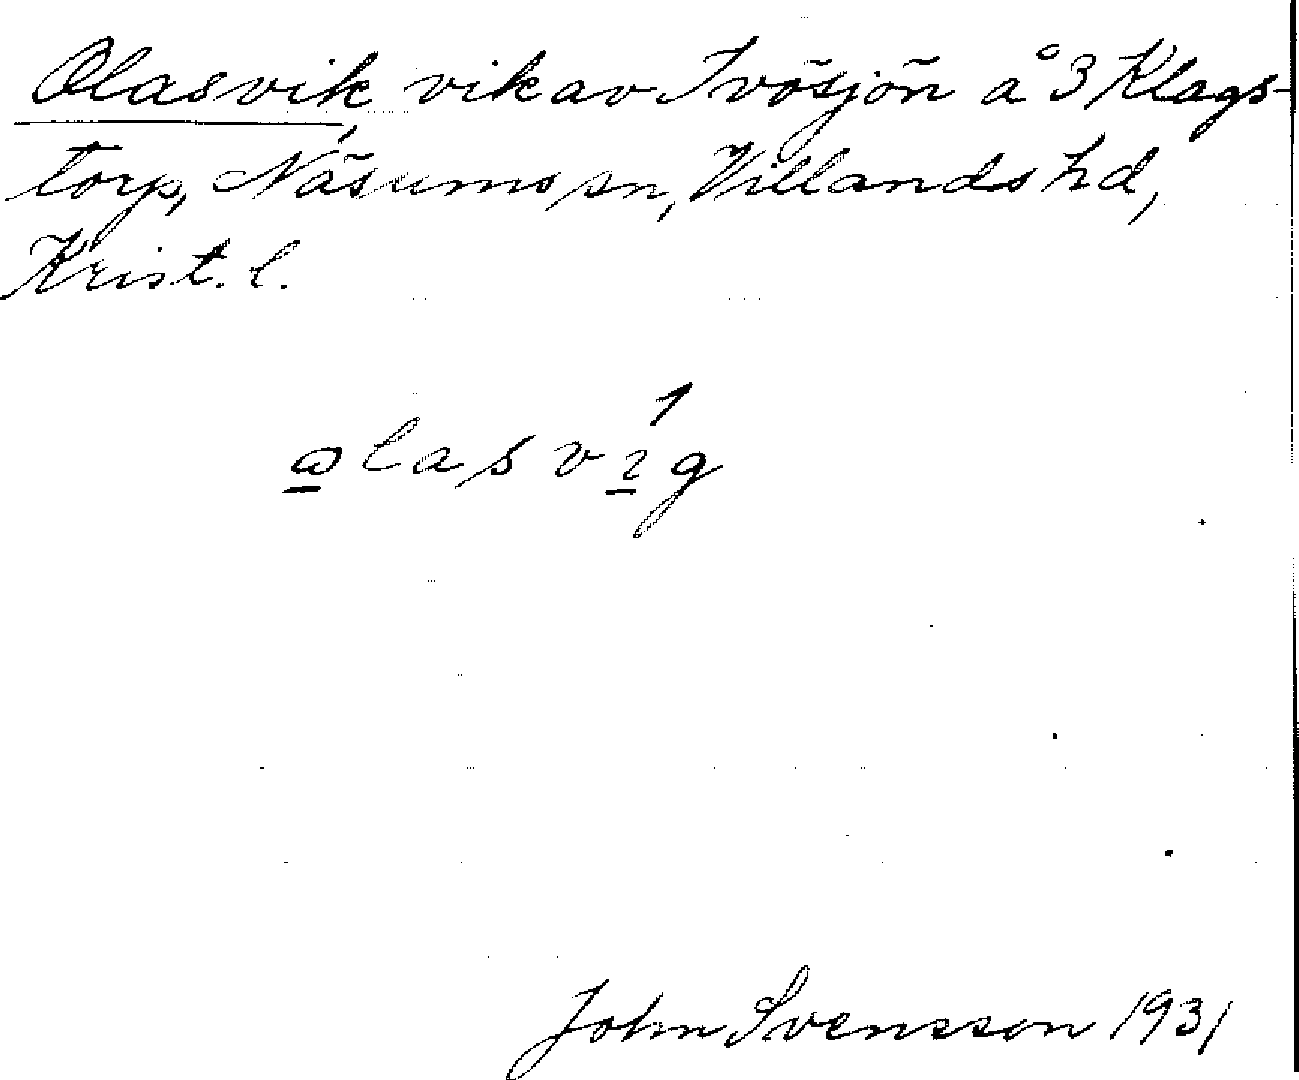 Olasvik, vik av Ivösjön å 3 Klags-
torp, Näsums sn, Villands hd,
Krist. l.
ωlasvı́g
John Svensson 1931